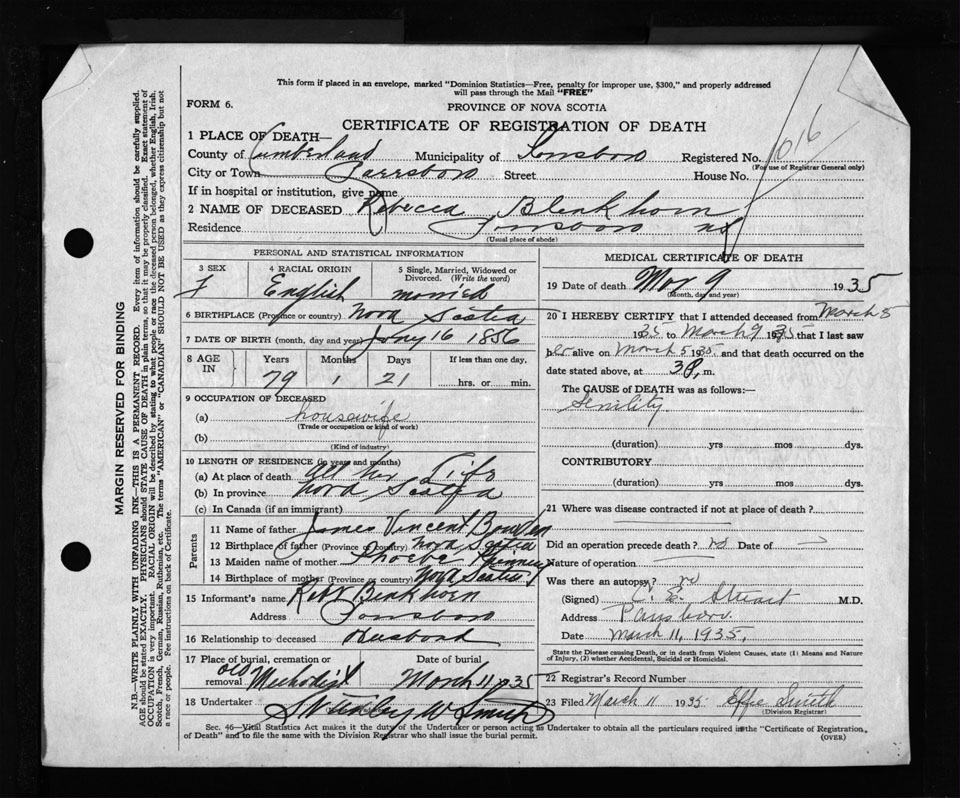 This form if placed in an envelope, marked "Dominion Statistics—Free, penalty for improper use, $300," and properly addressed
will pass through the Mail "FREE"
FORM 6.
PROVINCE OF NOVA SCOTIA
CERTIFICATE OF REGISTRATION OF DEATH
1016
1 PLACE OF DEATH—
County of Cumberland Municipality of Parrsboro Registered No.
(For use of Registrar General only)
City or Town Parrsboro Street House No.
If in hospital or institution, give name
2 NAME OF DECEASED Rebecca Blenkhorn
Residence Parrsboro NS
(Usual place of abode)
MARGIN RESERVED FOR BINDING
N.B.—WRITE PLAINLY WITH UNFADING INK—THIS IS A PERMANENT RECORD. Every item of information should be carefully supplied.
AGE should be stated EXACTLY. PHYSICIANS should STATE CAUSE OF DEATH in plain terms, so that it may be properly classified. Exact statement of
OCCUPATION is very important. RACIAL ORIGIN will be described by stating to what people or race the deceased person belonged, whether English, Irish,
Scotch, French, German, Russian, Ruthenian, etc. The terms "AMERICAN" or "CANADIAN" SHOULD NOT BE USED as they express citizenship but not
a race or people. See instructions on back of Certificate.
PERSONAL AND STATISTICAL INFORMATION
3 SEX
F
4 RACIAL ORIGIN
English
5 Single, Married, Widowed or
Divorced. (Write the word)
married
6 BIRTHPLACE (Province or country) Nova Scotia
7 DATE OF BIRTH (month, day and year) Jany 16 1856
8 AGE IN
Years Months Days If less than one day,
79 1 21 hrs. or min.
9 OCCUPATION OF DECEASED
(a) housewife
(Trade or occupation or kind of work)
(b)
(Kind of industry)
10 LENGTH OF RESIDENCE (in years and months)
(a) At place of death All her Life
(b) In province Nova Scotia
(c) In Canada (if an immigrant)
Parents
11 Name of father James Vincent Bowden
12 Birthplace of father (Province or country) Nova Scotia
13 Maiden name of mother Phoebe
14 Birthplace of mother (Province or country) Nova Scotia
15 Informant's name Robt Blenkhorn
Address Parrsboro
16 Relationship to deceased Husband
17 Place of burial, cremation or
removal Old Methodist
Date of burial
March 11 1935
18 Undertaker S Stanley W Smith
MEDICAL CERTIFICATE OF DEATH
19 Date of death Mar 9 1935
(Month, day and year)
20 I HEREBY CERTIFY that I attended deceased from March 5
1935 to March 9 1935 that I last saw
her alive on March 5 1935 and that death occurred on the
date stated above, at 3 P. m.
The CAUSE of DEATH was as follows:—
Senility
(duration) yrs mos dys.
CONTRIBUTORY
(duration) yrs mos dys.
21 Where was disease contracted if not at place of death?
Did an operation precede death? no Date of
Nature of operation
Was there an autopsy? no
(Signed) C. E. Stuart M.D.
Address Parrsboro.
Date March 11, 1935.
State the Disease causing Death, or in death from Violent Causes, state (1) Means and Nature
of Injury, (2) whether Accidental, Suicidal or Homicidal.
22 Registrar's Record Number
23 Filed March 11 1935 Effie Smith
(Division Registrar)
Sec. 46—Vital Statistics Act makes it the duty of the Undertaker or person acting as Undertaker to obtain all the particulars required in the "Certificate of Registration
of Death" and to file the same with the Division Registrar who shall issue the burial permit.
(OVER)